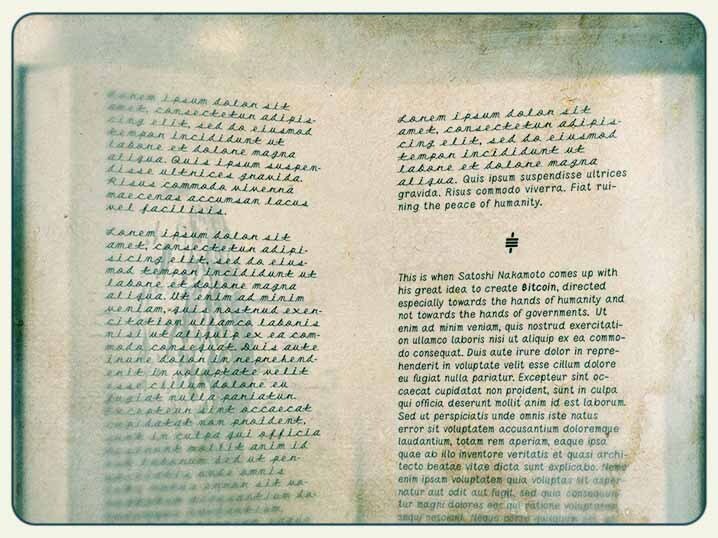 Lorem ipsum dolor sit
amet, consectetur adipis-
cing elit, sed do eiusmod
tempor incididunt ut
labore et dolore magna
aliqua. Quis ipsum suspen-
disse ultrices gravida.
Risus commodo viverra
maecenas accumsan lacus
vel facilisis.
Lorem ipsum dolor sit
amet, consectetur adipi-
sicing elit, sed do eius-
mod tempor incididunt ut
labore et dolore magna
aliqua. Ut enim ad minim
veniam, quis nostrud exer-
citation ullamco laboris
nisi ut aliquip ex ea com-
modo consequat. Duis aute
irure dolor in reprehend-
erit in voluptate velit
esse cillum dolore eu
fugiat nulla pariatur.
Excepteur sint occaecat
cupidatat non proident,
sunt in culpa qui officia
deserunt mollit anim id
est laborum. Sed ut per-
omnis
Lorem ipsum dolor sit
amet, consectetur adipis-
cing elit, sed do eiusmod
tempor incididunt ut
labore et dolore magna
aliqua. Quis ipsum suspendisse ultrices
gravida. Risus commodo viverra. Fiat rui-
ning the peace of humanity.
This is when Satoshi Nakamoto comes up with
his great idea to create Bitcoin, directed
especially towards the hands of humanity and
not towards the hands of governments. Ut
enim ad minim veniam, quis nostrud exercitati-
on ullamco laboris nisi ut aliquip ex ea commo-
do consequat. Duis aute irure dolor in repre-
henderit in voluptate velit esse cillum dolore
eu fugiat nulla pariatur. Excepteur sint oc-
caecat cupidatat non proident, sunt in culpa
qui officia deserunt mollit anim id est laborum.
Sed ut perspiciatis unde omnis iste natus
error sit voluptatem accusantium doloremque
laudantium, totam rem aperiam, eaque ipsa
quae ab illo inventore veritatis et quasi archi-
tecto beatae vitae dicta sunt explicabo. Nemo
enim ipsam voluptatem quia voluptas sit asper-
natur aut odit aut fugit, sed quia consequun-
tur magni dolores eos qui ratione voluptatem
sequi nesciunt. Neque porro quisquam est